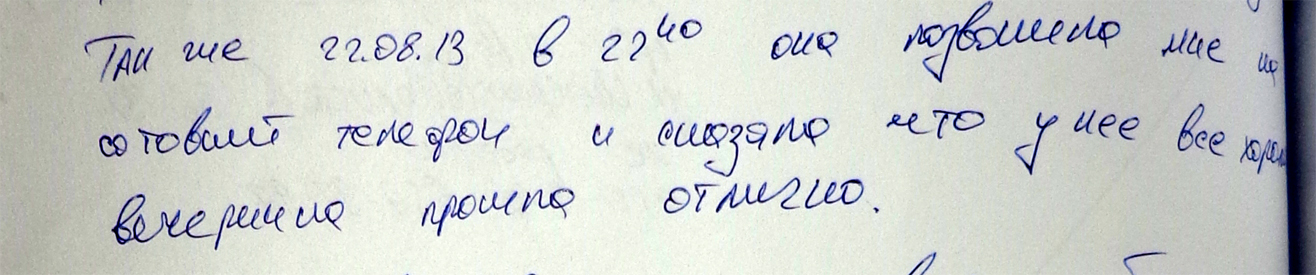 Так же 22.08.13 в 22⁴⁰ она позвонила мне на
сотовый телефон и сказала что у нее все хорошо
вечеринка прошла отлично.